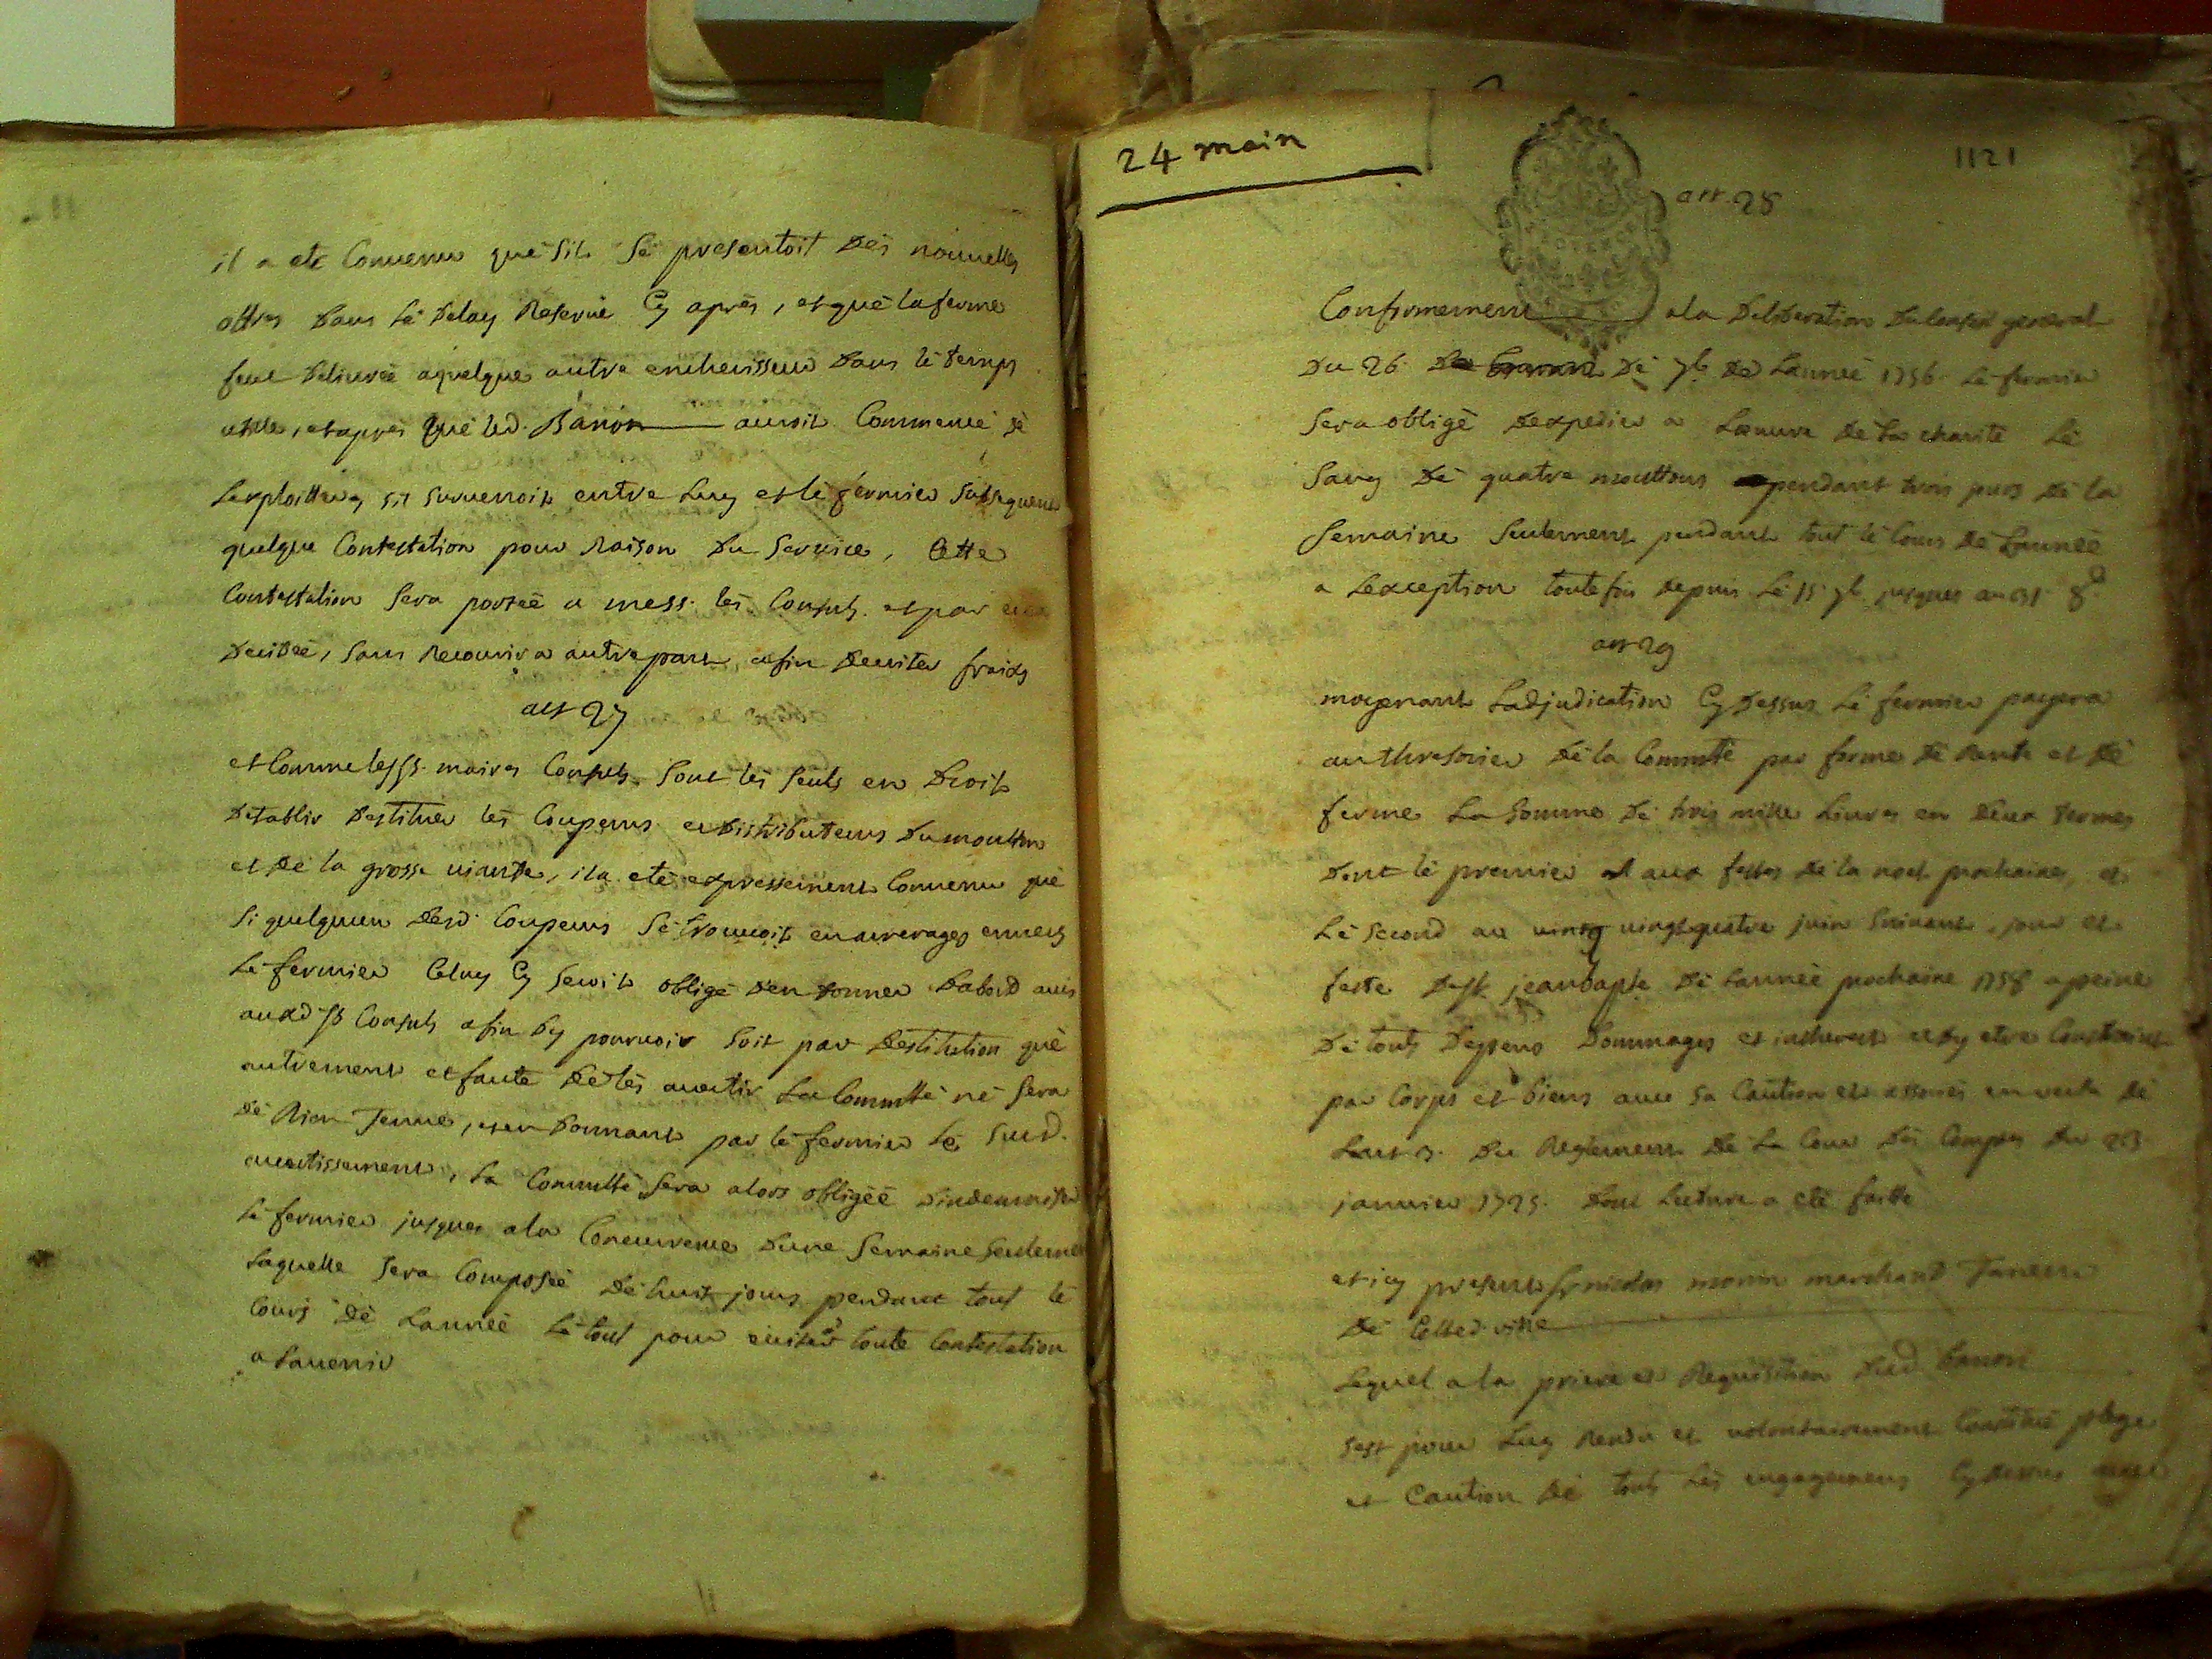 il a eté Convenu que sil se presentoit des nouvelles
offres dans le delay Reservé Cy après, et que la ferme
feut delivrée a quelque autre encherisseur dans le temps
utille, et apres que led. Banon auroit Commencé de
Lexploitter, sil survenoit entre Luy et le fermier subsequent
quelque Contestation pour Raison du service, Cette
Contestation sera portée a mess. les Consuls. et par eux
decidée, sans Recourir a autre part, afin deviter fraids
art 27
et Comme lessrs. maires Consuls sont les seuls en droit
detablir destituer les Coupeurs et distributeurs du moutton
et de la grosse viande, il a eté expressement Convenu que
si quelquun desd. Coupeurs se trouvoit en arrerages envers
le fermier Celuy Cy seroit obligé d'en donner dabord avis
auxd. srs Consuls afin dy pourvoir soit par destitution que
autrement et faute de les avertir La Commté ne sera
de Rien Tenue, et en donnant par le fermier le susd.
avertissement, La Commté sera alors obligée d'indemniser
le fermier jusques a la Concurrence dune semaine seulement
Laquelle sera Composée de huit jours pendant tout le
Cours de Lannée le tout pour eviter toute Contestation
a Lavenir
24 main
1121
art. 28
Conformement a la deliberation du Conseil general
du 26 de 7bre de Lannée 1756 le fermier
sera obligé dexpedier a Loeuvre de la charité le
sang de quatre mouttons pendant trois jours de la
semaine seulement pendant tout le Cours de Lannée
a Lexception toutefois depuis le 15 7bre jusques au 31 8bre
art 29
moyenant Ladjudication Cy dessus le fermier payera
au thresorier de la Commté par forme de Rante et de
ferme La somme de trois mille Livres en deux termes
dont le premier aux festes de la noel prochaine, et
le second au vingt quatre juin suivant, jour et
feste de st jean bapte de Lannée prochaine 1758 a peine
de touts depens dommages et intherests et dy etre Constraint
par Corps et biens avec sa Caution et en vertu de
Lart 3. du Reglement de La Cour des Comptes du 23
janvier 1725. dont Lecture a eté faitte
et icy present sr nicolas monin marchand Taneur
de Cetted. ville
Lequel a la priere et Requisition dud Banon
sest pour Luy Rendu et volontairement Constitué plege
et Caution de touts les engagemens Cy dessus